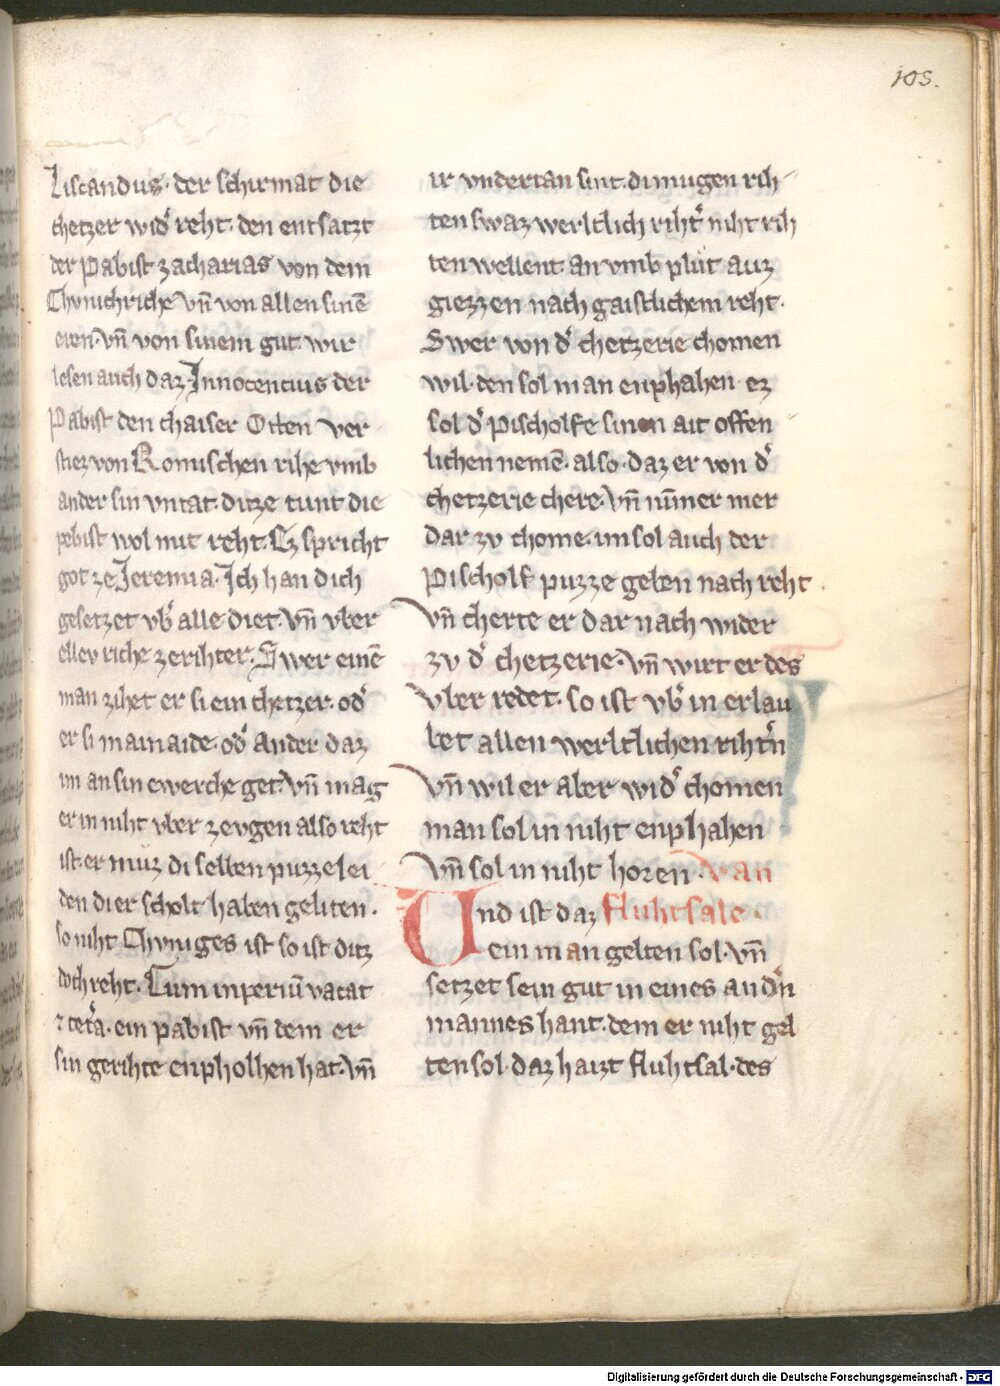 105.
Liscandus· der schirmat die
chetzer wid᷑ reht· den entsatzt
der Pabist zacharias von dem
Chvnichriche vn̄ von allen sinē
eren· vn̄ von sinem gut· wir
lesen auch daz· Innocentius der
Pabist den chaiser Otten ver
stiez von Romischen rihe vmb
ander sin vntat· ditze tunt die
pebist wol mit reht· Ez spricht
got ze Jeremia· Ich han dich
gesetzet vb᷑ alle diet· vn̄ vber
ellev riche ze rihter· Swer einē
man zihet er si ein chetzer· od᷑
er si mainaide· od᷑ ander daz
im an sin ewerche get· vn̄ mag
er in niht vber zevgen also reht
ist· er můz di selben puzze lei
den di er scholt haben geliten·
so niht Chvniges ist so ist ditz
doch reht· Cum inperiū vacat
⁊ cet᷑a· ein pabist vn̄ dem er
sin gerihte enpholhen hat· vn̄
ir vndertan sint· di mugen rih-
ten swaz werltlich riht᷑ niht rih
ten wellent· an vmb plůt auz
giezzen nach gaistlichem reht·
Swer von d᷑ chetzerie chomen
wil· den sol man enphahen· ez
sol d᷑ Pischolfe sinen ait offen-
lichen nemē· also· daz er von d᷑
chetzerie chere· vn̄ nīmer mer
dar zv chome· im sol auch der
Pischolf puzze geben nach reht·
vn̄ cherte er dar nach wider
zv d᷑ chetzerie· vn̄ wirt er des
vber redet· so ist vb᷑ in erlau
bet allen werltlichen riht᷑n
vn̄ wil er aber wid᷑ chomen
man sol in niht enphahen
vn̄ sol in niht horen· van
Und ist daz fluhtsale·
ein man gelten sol· vn̄
setzet sein gut in eines and᷑n
mannes hant· dem er niht gel
ten sol· daz haizt fluhtsal· des
Digitalisierung gefördert durch die Deutsche Forschungsgemeinschaft - DFG